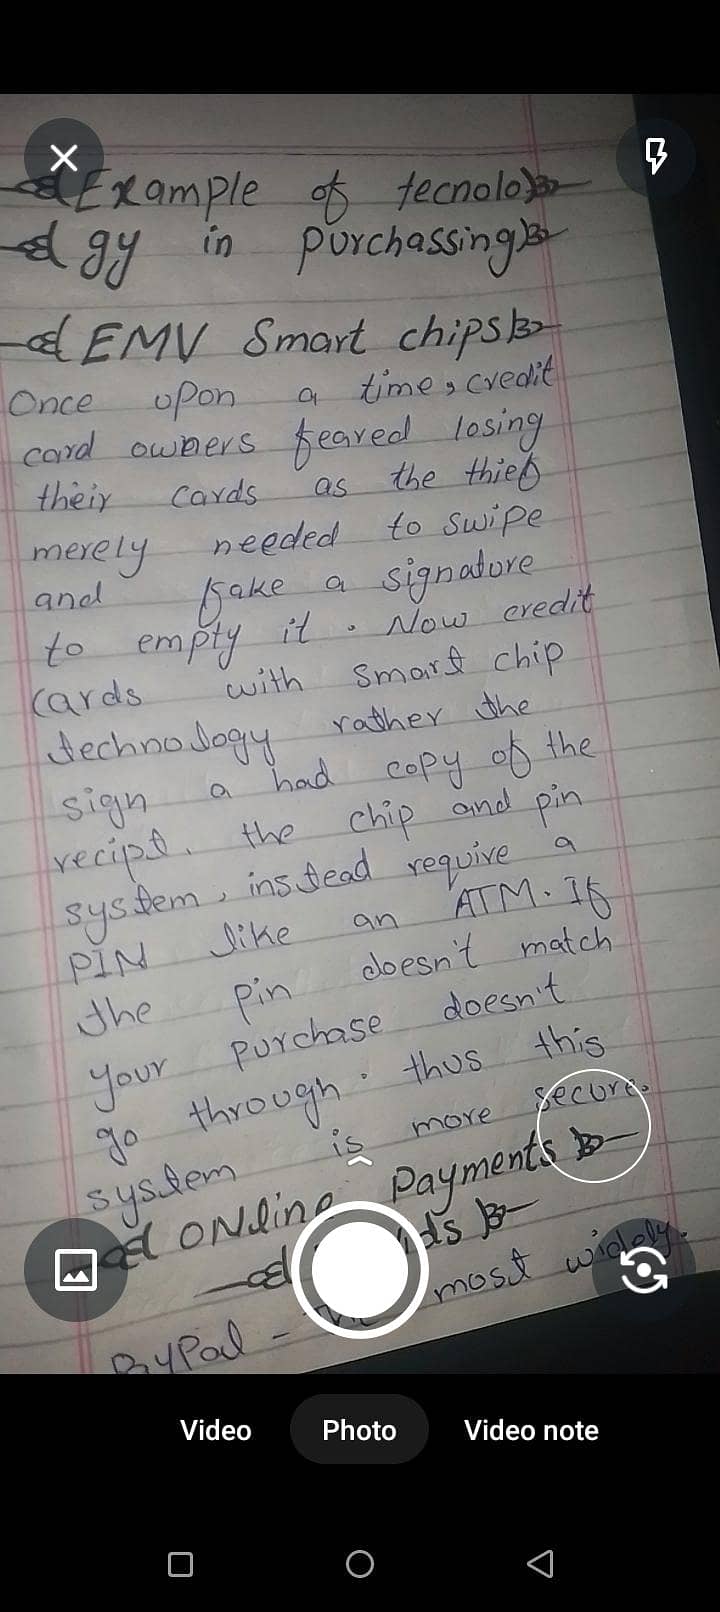 Example of tecnolo
gy in purchassing
EMV Smart chips
Once upon a time, credit
card owners feared losing
their cards as the thief
merely needed to swipe
and fake a signature
to empty it. Now credit
cards with smart chip
technology rather the
sign a had copy of the
recipt. the chip and pin
system, instead require a
PIN like an ATM. If
the pin doesn't match
your purchase doesn't
go through. thus this
system is more secure.
ONline Payments
most widely.
PayPal -
Video Photo Video note